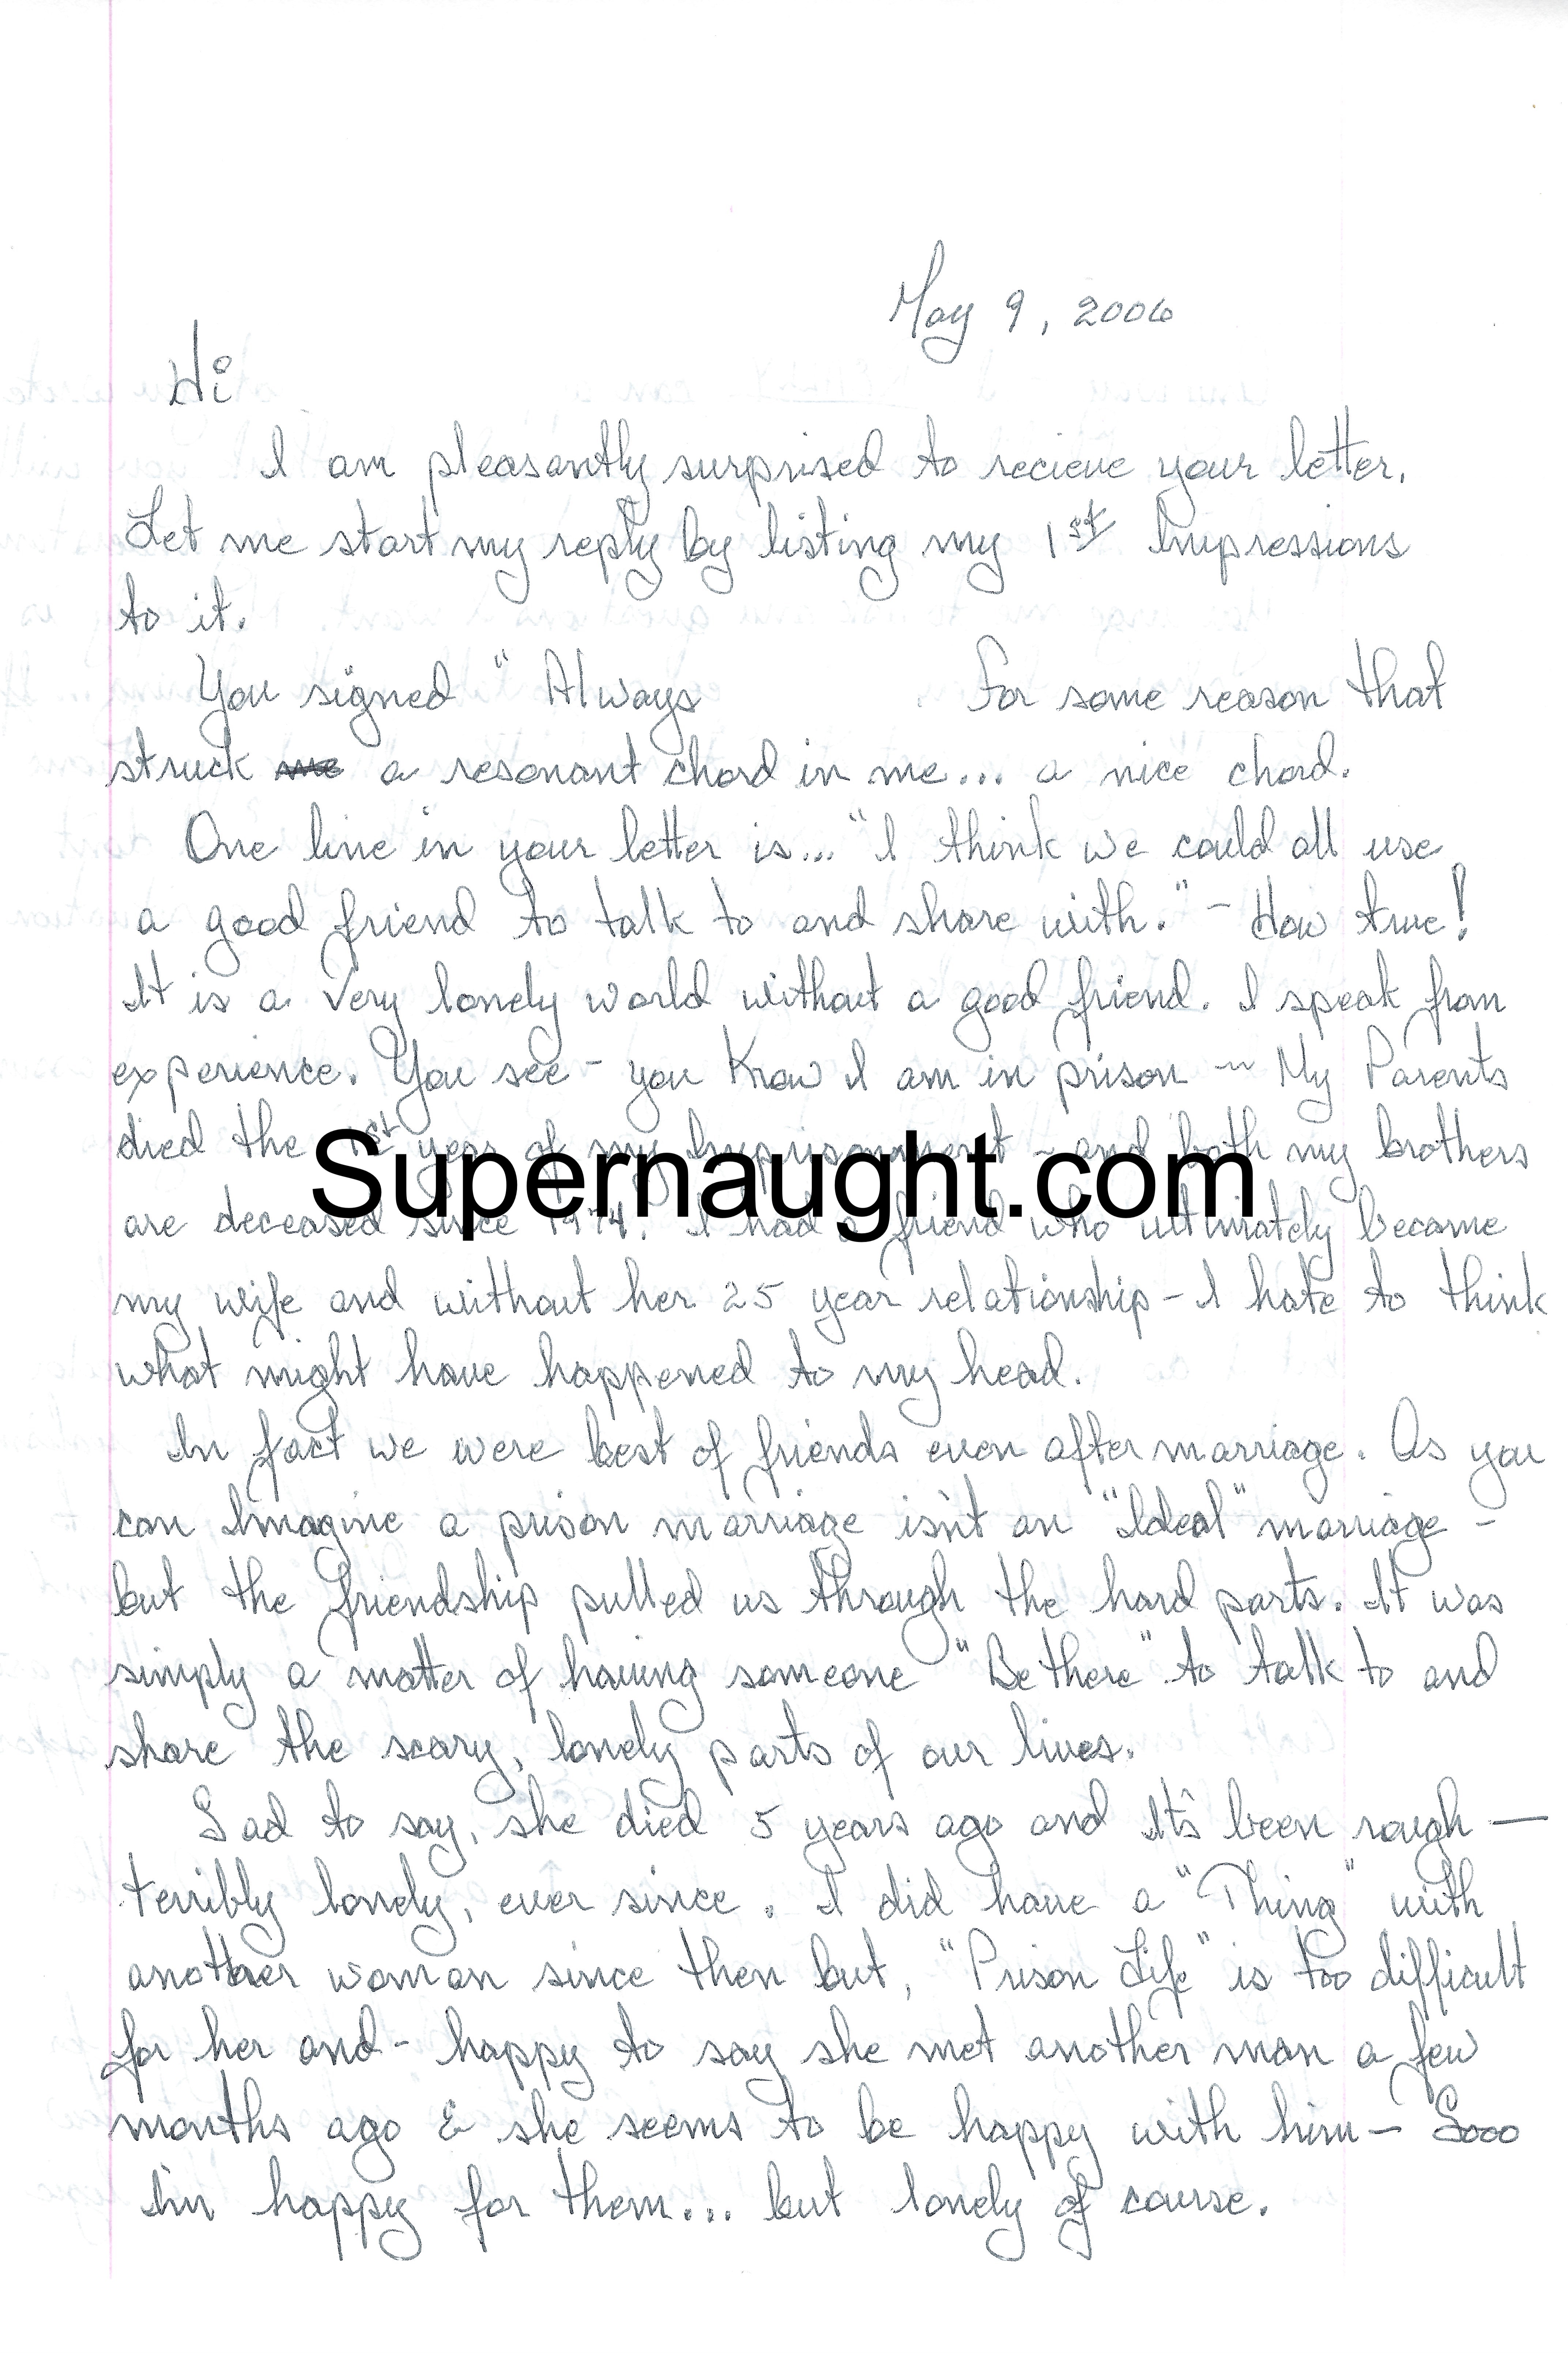 May 9, 2006
Hi
I am pleasantly surprised to recieve your letter.
Let me start my reply by listing my 1st Impressions
to it.
You signed " Always For some reason that
struck me a resonant chord in me... a nice chord.
One line in your letter is... "I think we could all use
a good friend to talk to and share with." - How true!
It is a Very lonely world without a good friend. I speak from
experience. You see - you Know I am in prison - My Parents
died the 1st year of my Imprisonment - and both my brothers
Supernaught.com
are deceased since 1974. I had a friend who ultimately became
my wife and without her 25 year relationship - I hate to think
what might have happened to my head.
In fact we were best of friends even after marriage. As you
can Imagine a prison marriage isn't an "Ideal" marriage -
but the friendship pulled us through the hard parts. It was
simply a matter of having someone "Be there" to talk to and
share the scary, lonely parts of our lives.
Sad to say, she died 5 years ago and It's been rough —
terribly lonely, ever since. I did have a "Thing" with
another woman since then but, "Prison Life" is too difficult
for her and - happy to say she met another man a few
months ago & she seems to be happy with him - Sooo
I'm happy for them... but lonely of course.